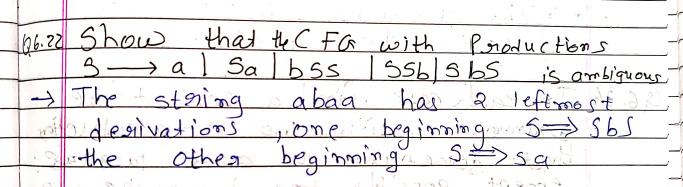 Q6.22 Show that the CFG with Productions
S → a | Sa | bSS | SSb | SbS is ambiguous
→ The string abaa has 2 leftmost
derivations, one beginning S ⇒ SbS
the other beginning S ⇒ Sa